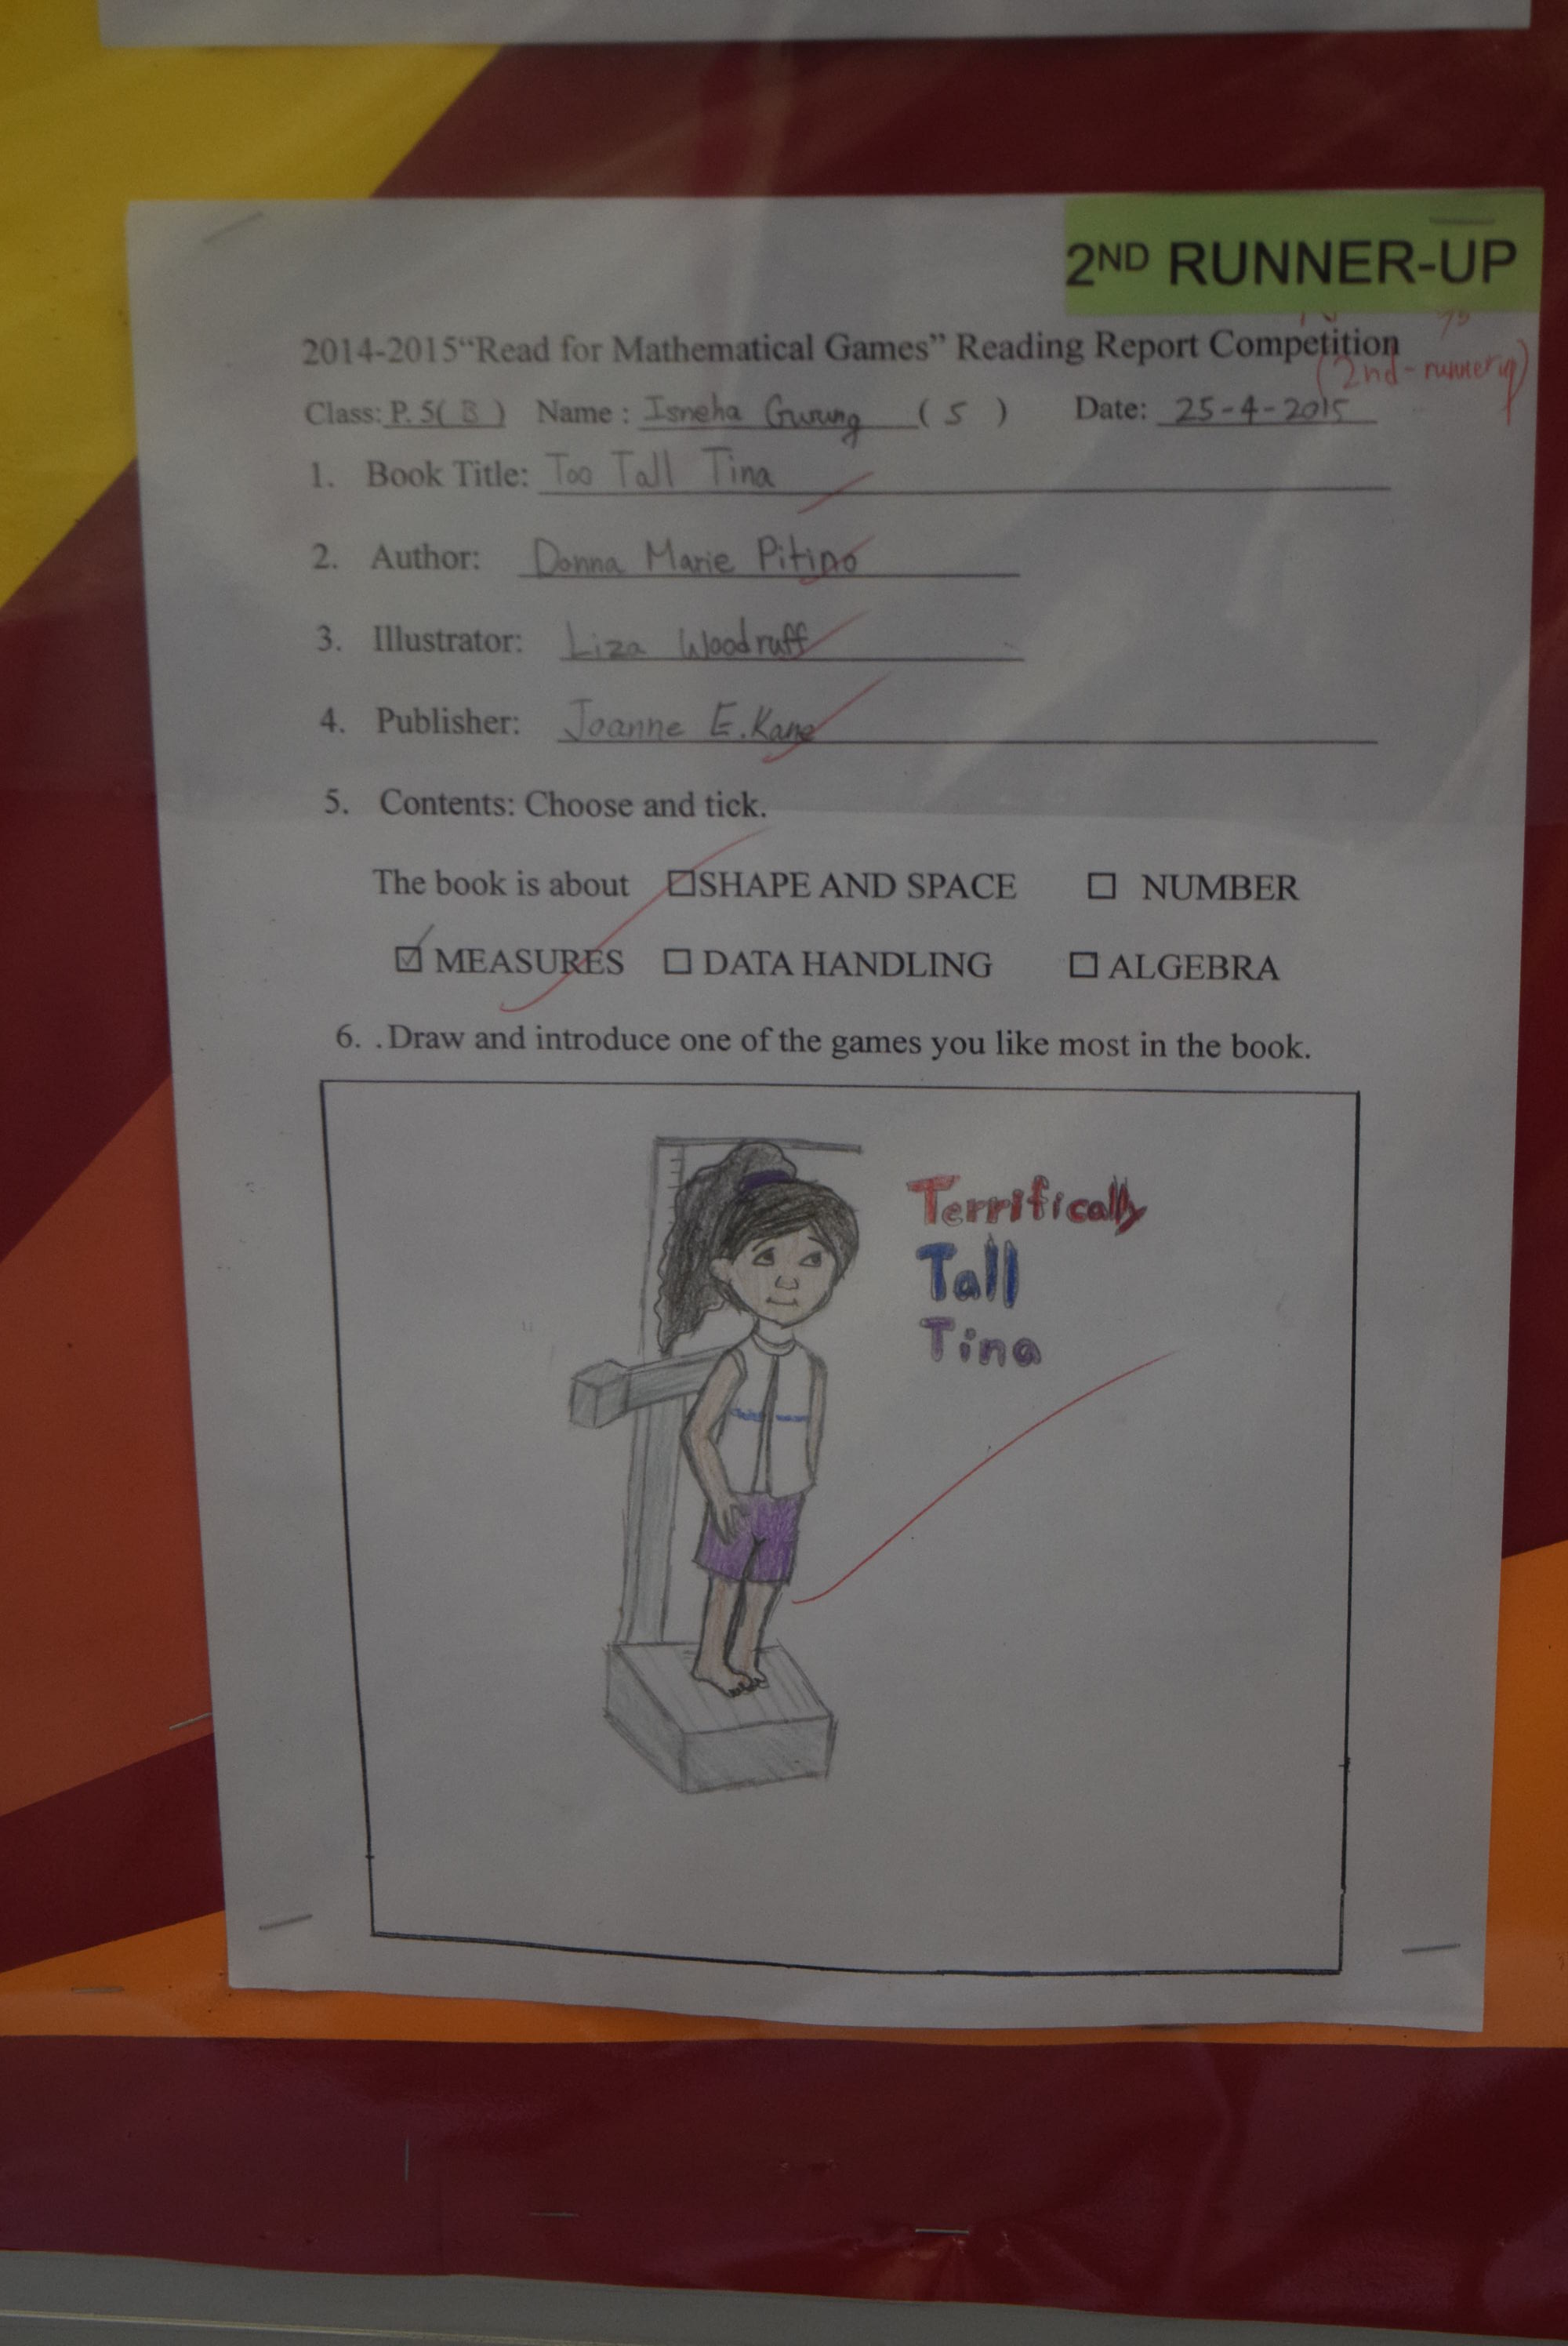 2ND RUNNER-UP
2014-2015“Read for Mathematical Games” Reading Report Competition
(2nd-runnerup)
Class: P. 5( B ) Name : Isneha Gurung ( 5 ) Date: 25-4-2015
1. Book Title: Too Tall Tina
2. Author: Donna Marie Pitino
3. Illustrator: Liza Woodruff
4. Publisher: Joanne E. Kane
5. Contents: Choose and tick.
The book is about ☐SHAPE AND SPACE ☐ NUMBER
☑ MEASURES ☐ DATA HANDLING ☐ ALGEBRA
6. .Draw and introduce one of the games you like most in the book.
Terrifically
Tall
Tina